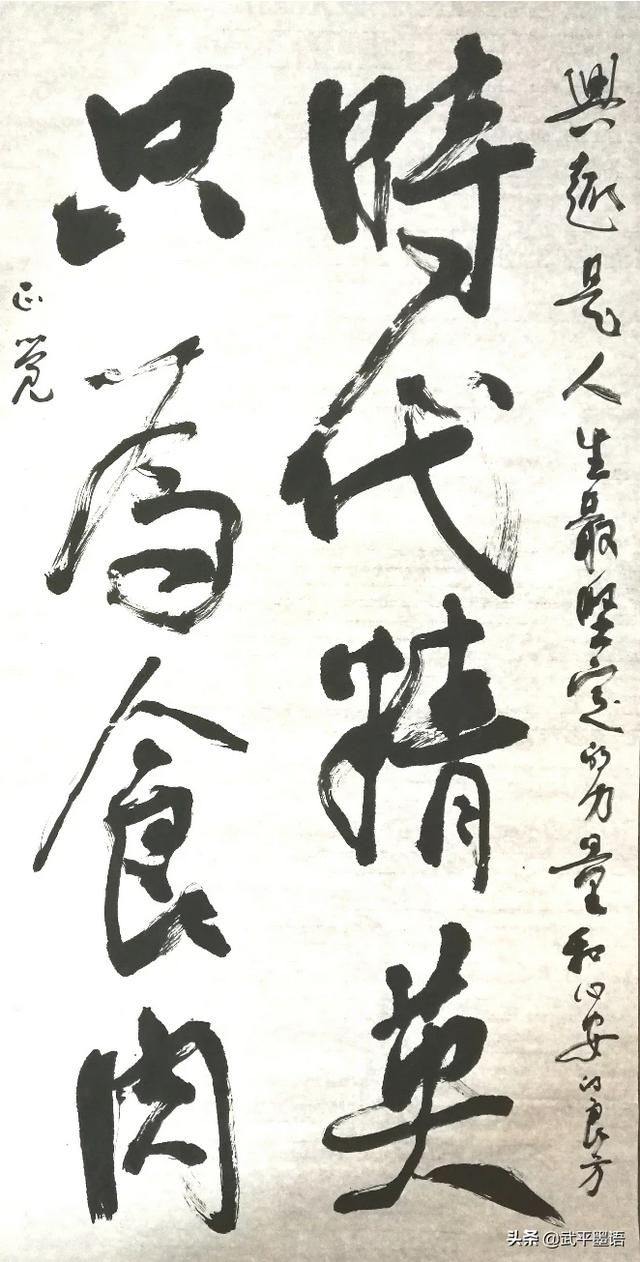 興趣是人生最堅定的力量和心安的良方
時代精英
只為食肉
正觉
头条 @武平墨语